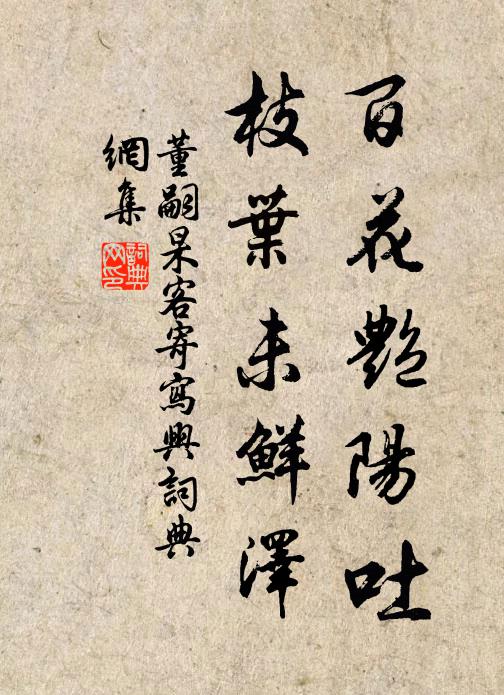 百花艷陽吐
枝葉未鮮澤
董嗣杲客寄寫興詞典
網集
詞典网印